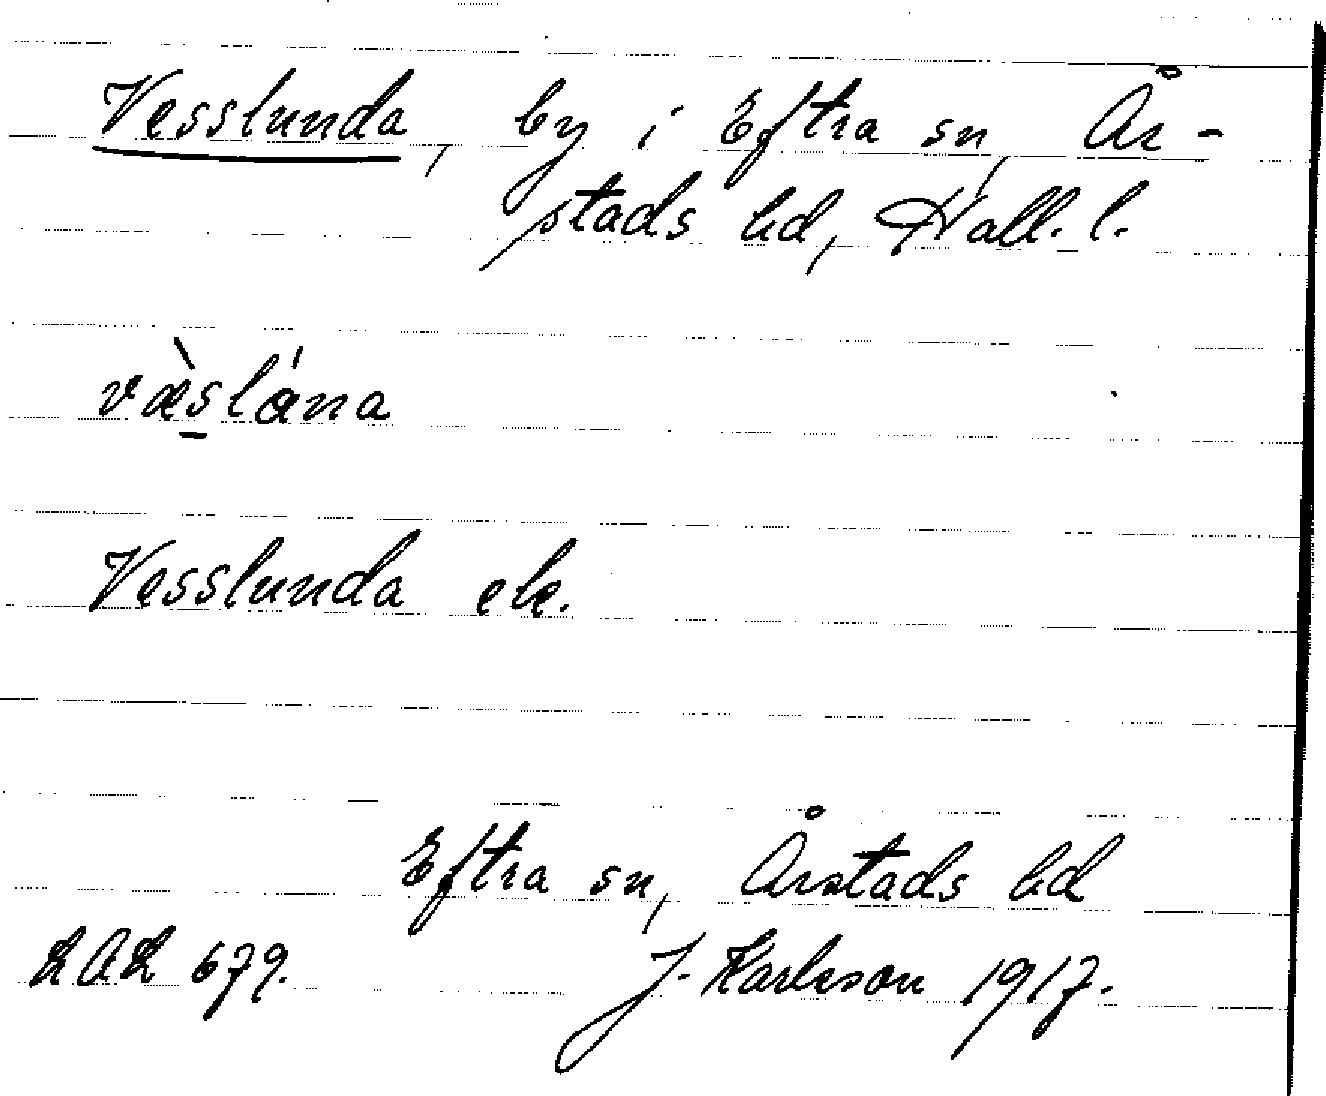 Vesslunda, by i Eftra sn, År-
stads hd, Hall. l.
væ̀slána
Vesslunda ek.
Eftra sn, Årstads hd
LAL 679. J. Karlsson 1917.